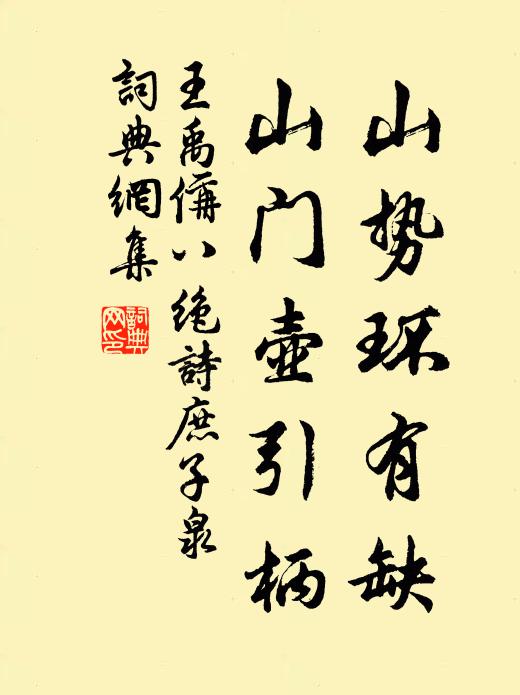 山势环有缺
山门壶引柄
王禹偁八絶詩庶子泉
詞典網集
詞典网印